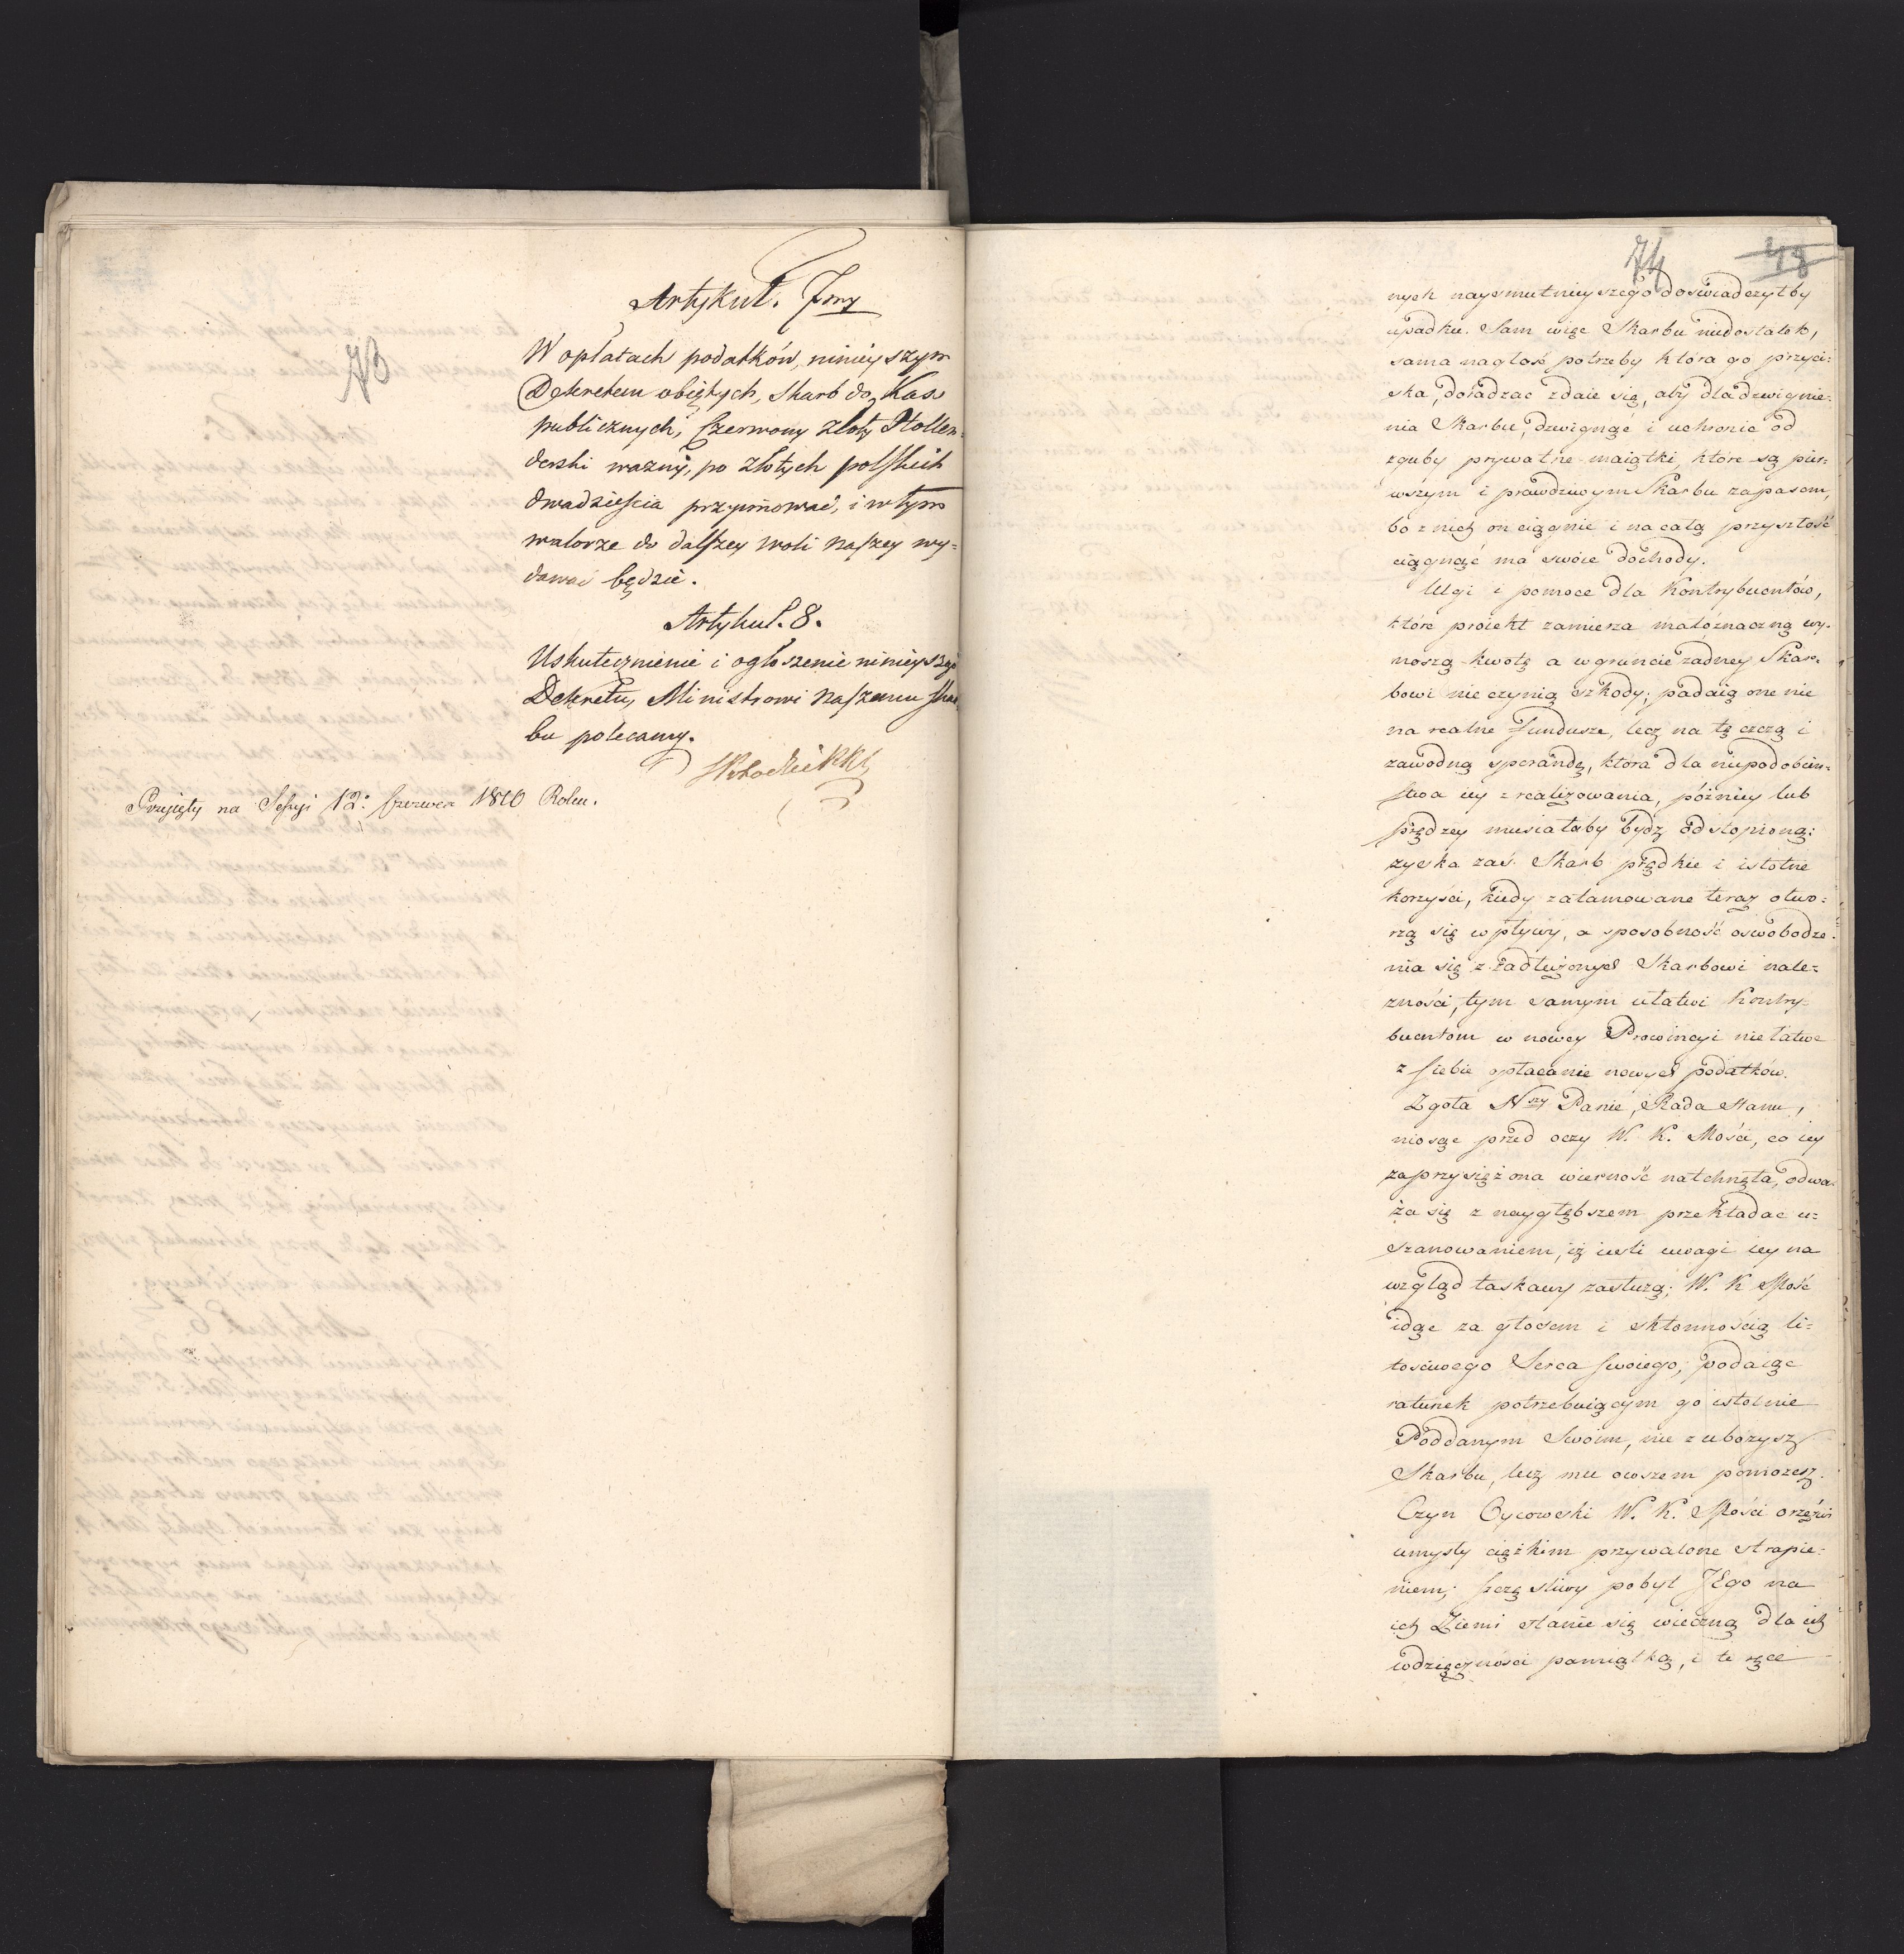 73
Artykuł. 7my
W opłatach podatków, nineyszym
Dekretem obiętych, Skarb do Kass
publicznych, Czerwony złoty Hollen=
derski ważny, po złotych polskich
dwadzieścia przyimować, i w tym
walorze do dalszey woli Naszey wy=
dawać będzie.
Artykuł. 8.
Uskutecznienie i ogłoszenie ninieyszego
Dekretu, Ministrowi Naszemu Skar,
bu polecamy.
Przyięty na Sessyi 12: Czerwca 1810 Roku.
74 48
nych naysmutnieyszego doświadczyłby
upadku. Sam więc Skarbu niedostatek,
sama nagłość potrzeby która go przyci=
ska, doradzać zdaie się, aby dla dzwignie=
nia Skarbu, dzwignąć i uchronić od
zguby prywatne maiątki, które są pier=
wszym i prawdziwym Skarbu zapasem,
bo z nich on ciągnie i na całą przyszłość
ciągnąć ma swoie dochody.
Ulgi i pomoce dla Kontrybuentów,
które proiekt zamierza małoznaczną wy=
noszą kwotę a w gruncie żadney Skar=
bowi nie czynią szkody; padaią one nie
na realne Fundusze, lecz na tę czczą i
zawodną sperandę, która dla niepodobień=
stwa iey zrealizowania, późniey lub
prędzey musiałaby bydź odstąpioną;
zyska zaś Skarb prędkie i istotne
korzyści, kiedy zatamowane teraz otwo=
rzą się wpływy, a sposobność oswobodze=
nia się z zadłużonych Skarbowi nale=
żności, tym samym ułatwi Kontry=
buentom w nowey Prowincyi niełatwe
z siebie opłacanie nowych podatków.
Zgoła Nszy Panie, Rada Stanu,
niosąc przed oczy W. K. Mości, co iey
zaprzysiężona wierność natchnęła, odwa=
ża się z naygłębszem przekładać u=
szanowaniem, iż ieśli uwagi iey na
wzgląd łaskawy zasłużą; W. K Mość
idąc za głosem i skłonnością li=
tościwego Serca swoiego, podaiąc
ratunek potrzebuiącym go istotnie
Poddanym Swoim, nie zubożysz
Skarbu, lecz mu owszem pomożesz.
Czyn Oycowski W. K. Mości orzeźwi
umysły ciężkim przywalone strapie=
niem; szczęśliwy pobyt JEgo na
ich Ziemi stanie się wieczną dla ich
wdzięczności pamiątką, i te ręce